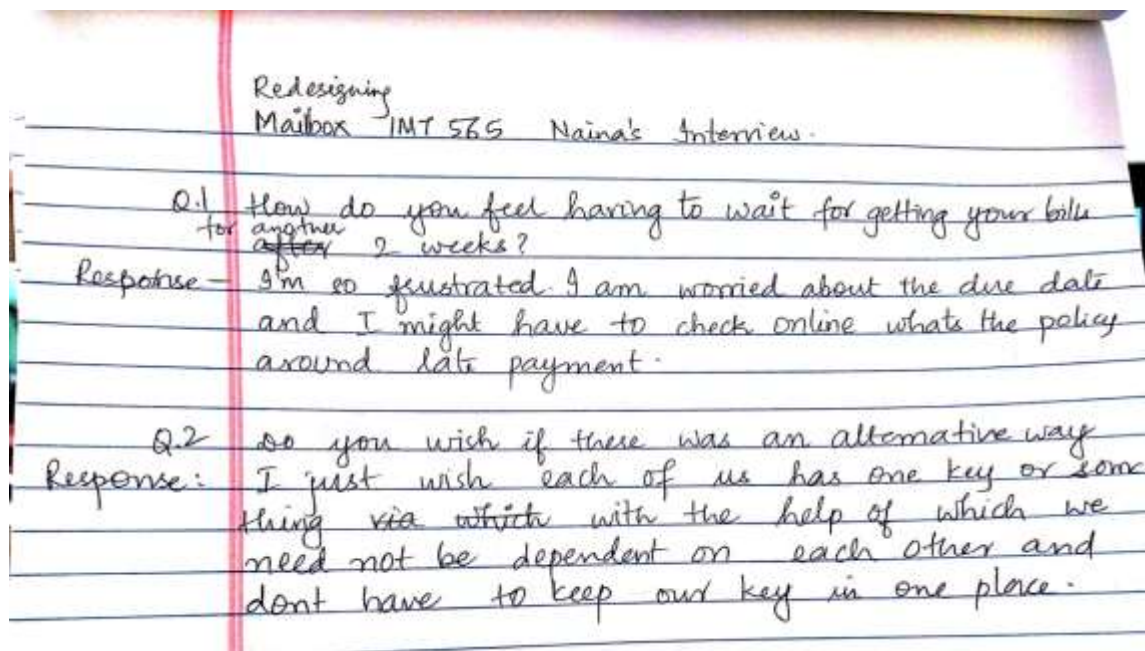 Redesigning
Mailbox IMT 565 Naina's Interview.
Q.1 How do you feel having to wait for getting your bills
for another after 2 weeks?
Response - I'm so frustrated. I am worried about the due date
and I might have to check online whats the policy
around late payment.
Q.2 Do you wish if there was an alternative way
Response: I just wish each of us has one key or some
thing via which with the help of which we
need not be dependent on each other and
dont have to keep our key in one place.